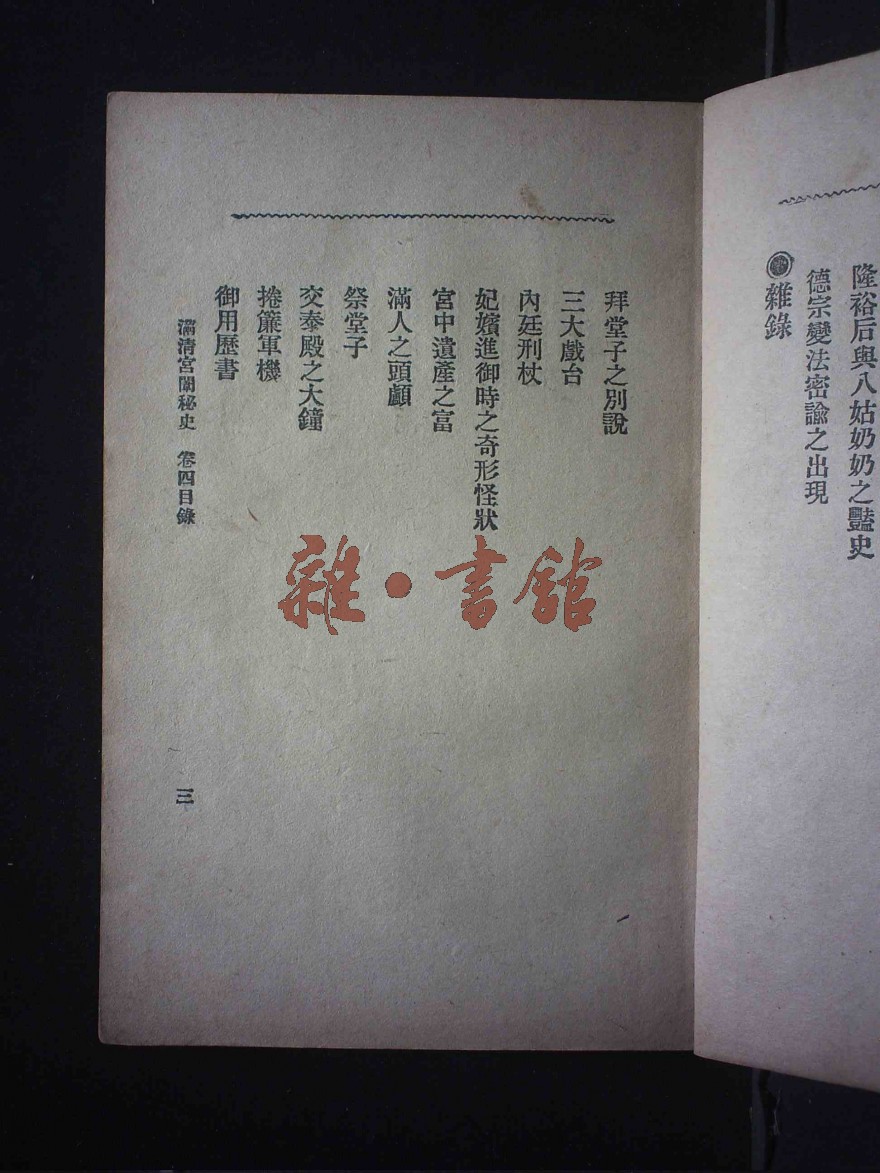 隆裕后與八姑奶奶之豔史
德宗變法密諭之出現
◉雜錄
拜堂子之別說
三大戲台
內廷刑杖
妃嬪進御時之奇形怪狀
宮中遺產之富
滿人之頭顱
祭堂子
交泰殿之大鐘
捲簾軍機
御用歷書
滿清宮闈秘史 卷四目錄 三
雜·書館